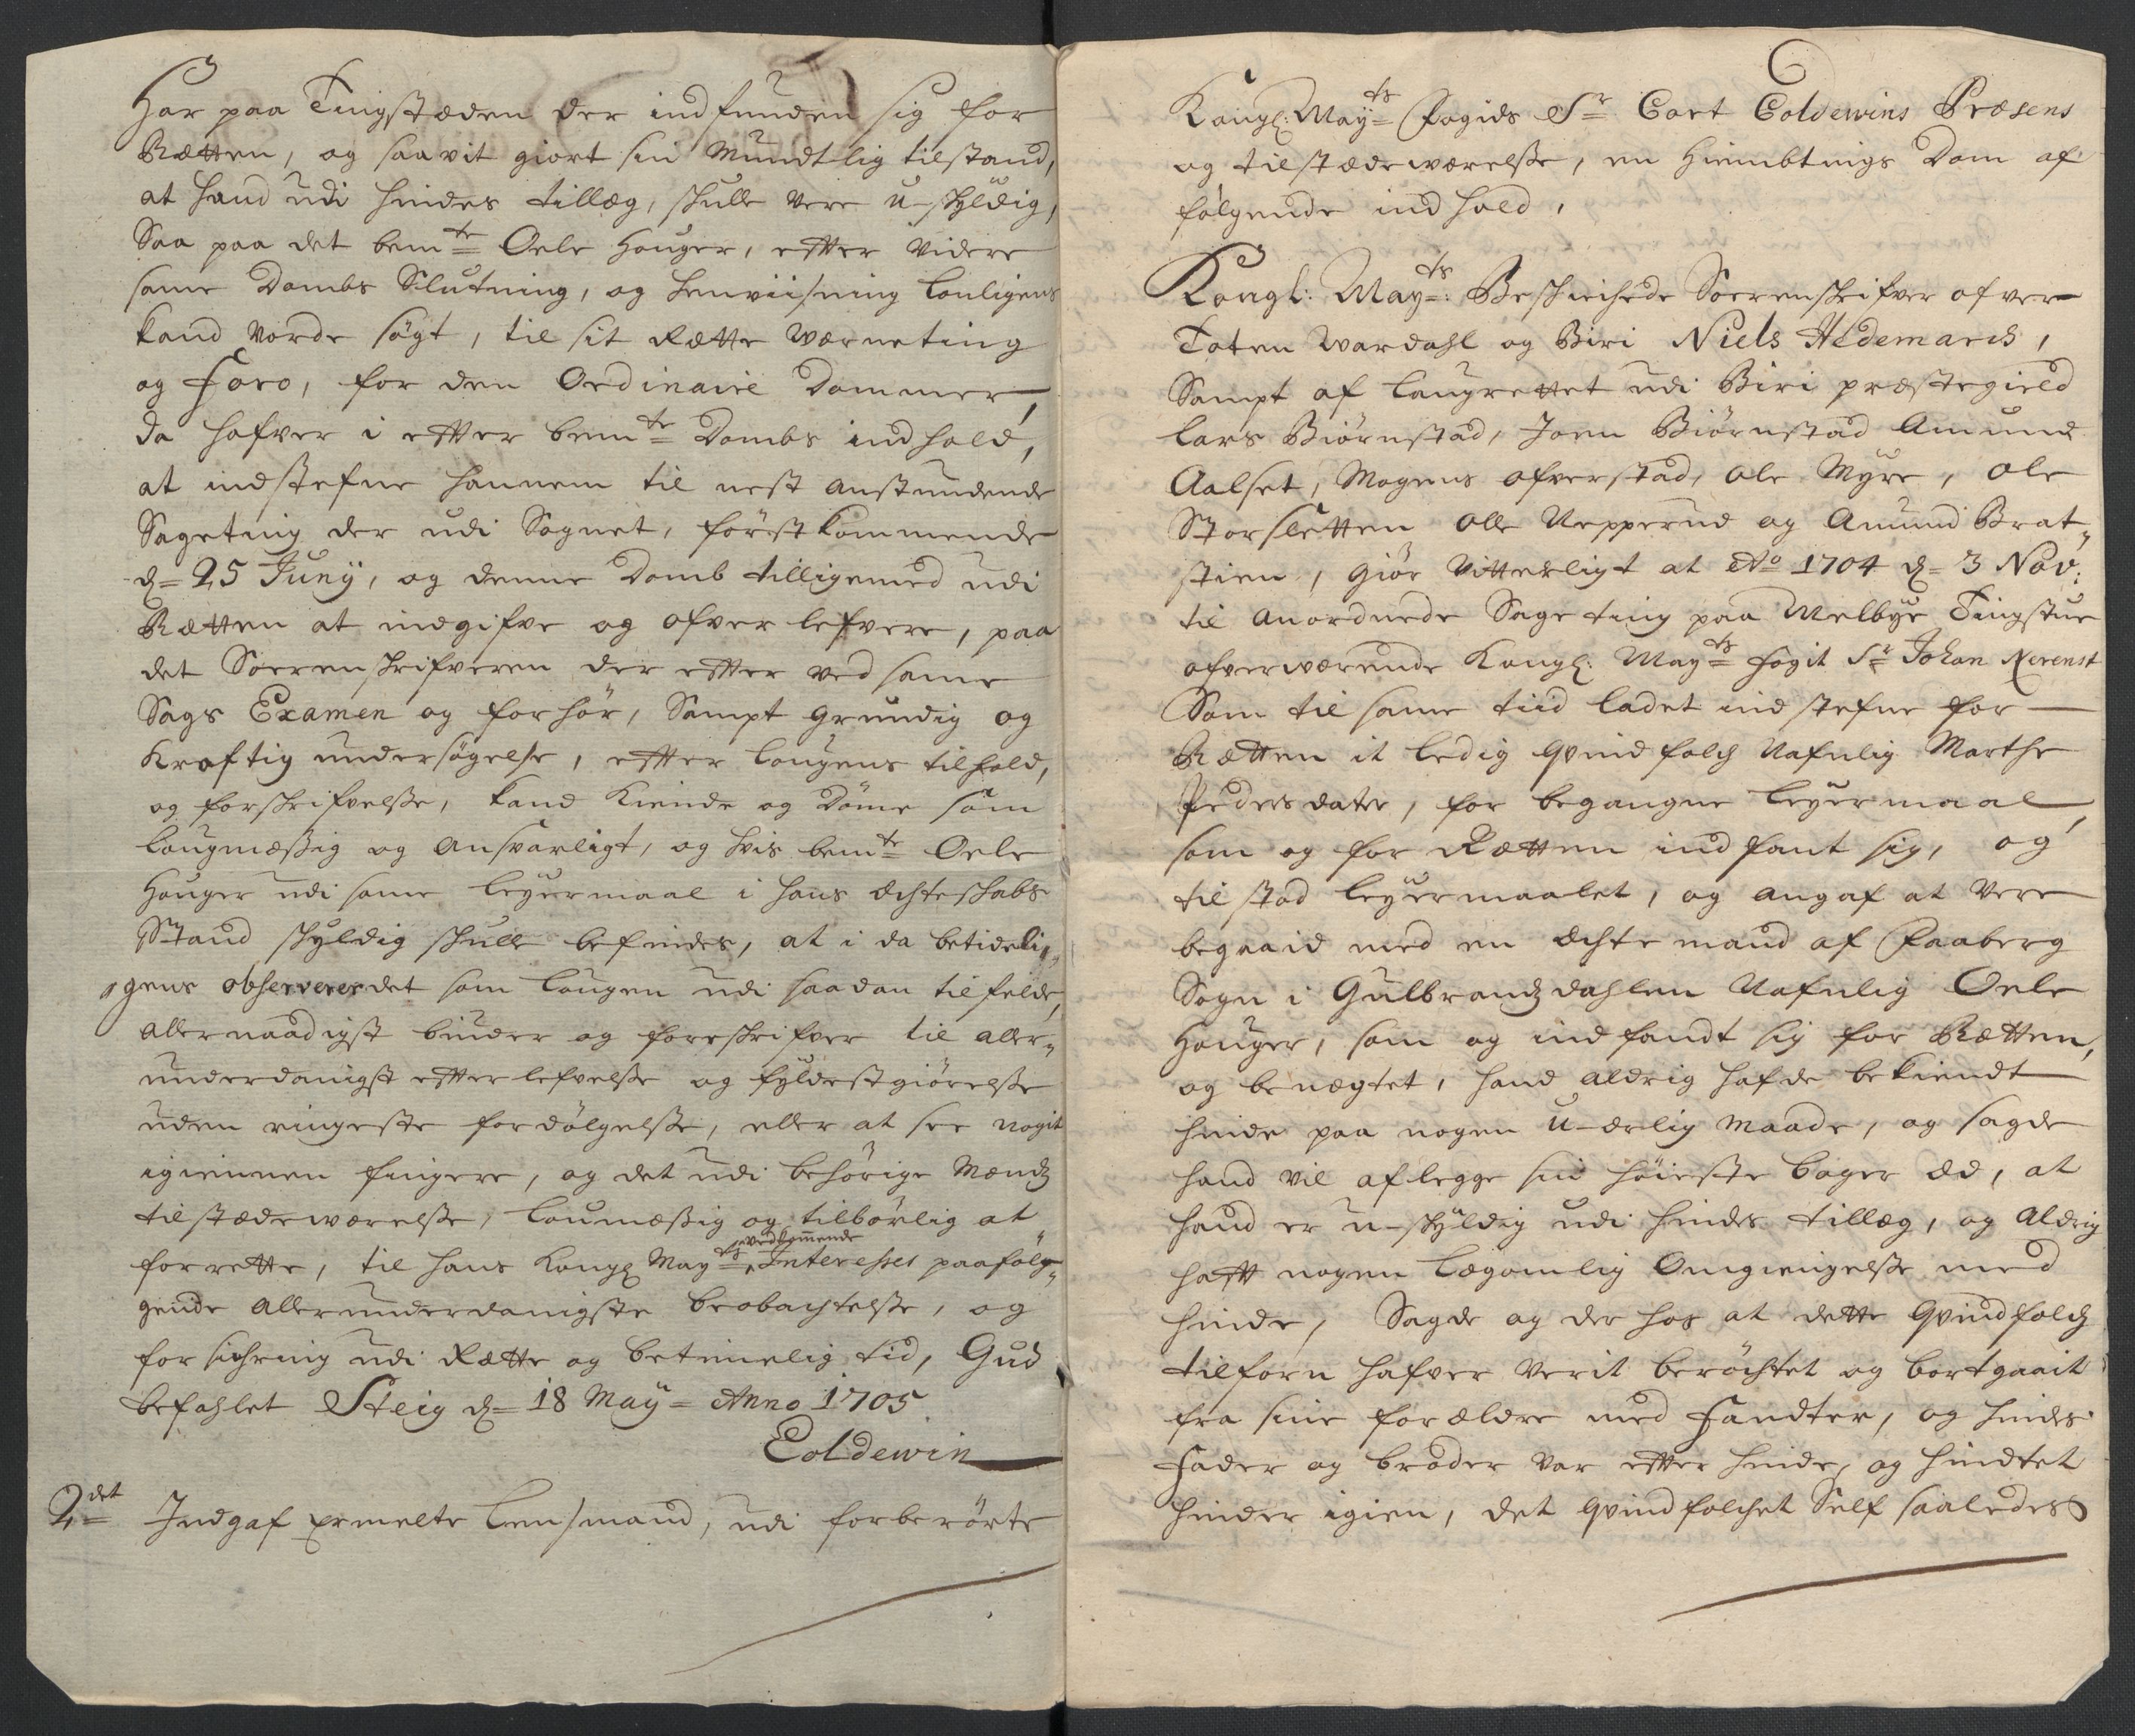 Har paa Tingstæden der indfunden sig for
Rætten, og saavit giort sin Mundtlig tilstand,
at hand udi hindes tillæg, skulle vere u-skyldig,
Saa paa det bem.te Oele Houger, efter videre
same Dombs Slutning, og henviisning louligens
kand vorde søgt, til sit Rætte Værneting
og Foro, for den Ordinaire Dommer,
da hafver i efter bem.te Dombs indhold,
at indstefne hannem til nest anstundende
Sageting der udi Sognet, først kommende
d= 25 Junÿ, og denne Domb tilligemed udi
Rætten at indgifve og ofver lefvere, paa
det Sorenskrifveren der efter ved same
Sags Examen og forhør, Sampt grundig og
kraftig undersøgelse, efter lougens tilhold,
og forskrifvelsse, kand kiende og døme som
lougmæssig og ansvarligt, og hvis bem.te Oele
Houger udi same leyermaal i hans ächteskabs
Stand skyldig skulle befindes, at i da betideli„
gens observerer det som lougen udi saadan tilfelde,
allernaadigst binder og foreskrifver til aller„
underdanigst efterlefvelsse og fyldestgiørelsse
uden ringeste fordølgelsse, eller at see nogit
igiennen fingere, og det udi behørige Mændz
tilstædeværelsse, loumæssig og tilbørlig at
forrette, til hans Kongl May.ts vedkomende Interesses paafølg„
gende allerunderdanigste beobachtelsse, og
forsichring udi Rætte og betimelig tid, Gud
befahlet Steig d= 18 Maÿ= Anno 1705
Coldewin
2.det Indgaf ermelte Lensmand, udi forberørte
Kongl: May.ts Fogids S.r Cort Coldewins Præsens
og tilstædeværelsse, en Hiembtings Dom af
følgende indhold,
Kongl: May.ts: Beskichede Sorenskrifver ofver
Toten Wardahl og Biri Niels Hedemarck,
Sampt af laugrettet udi Biri præstegield
lars Biørnstad, Joen Biørnstad Amund
Aalset, Mogens ofverstad, ole Myre, ole
Storsletten olle Nepperud og Amund Brat„
stien, giør vitterligt at A.o 1704 d= 3 Nov:
til anordnede Sage ting paa Melbye Tingstue
ofverværende Kongl: May.ts fogit S.r Johan Nerenst
Som til same tiid ladet indstefne for
Rætten it ledig qvindfolch Nafnlig Marthe
Pedersdater, for begangne leyermaal,
som og for Rætten indfant sig, og
tilstod leyermaalet, og angaf at vere
begaaid med en ächte mand af Faaberg
Sogn i Gulbrandzdahlen Nafnlig Oele
Houger, som og indfandt sig for Rætten,
og benegtet, hand aldrig hafde bekiendt
hinde paa nogen U-ærlig maade, og sagde
hand vil aflegge sin høieste boger æd, at
hand er u-skyldig udi hindes tillæg, og aldrig
haft nogen legomlig omgiengelsse med
hinde, Sagde og der hos at dette qvindfolch
tilforn hafver verit berøchtet og bortgaait
fra sine forældre med Fandter, og hindes
Fader og broder var efter hinde, og hindtet
hinder igien, det qvindfolchet Self saaledes